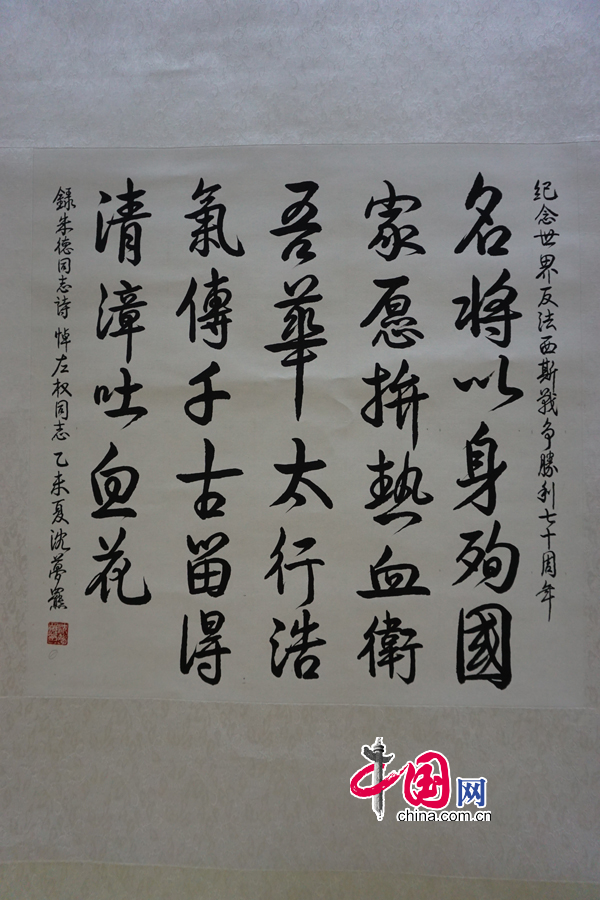 纪念世界反法西斯战争勝利七十周年
名将以身殉國
家愿拚熱血衛
吾華太行浩
氣傳千古留得
清漳吐血花
録朱德同志诗 悼左权同志 乙未夏沈夢
中国网
china.com.cn